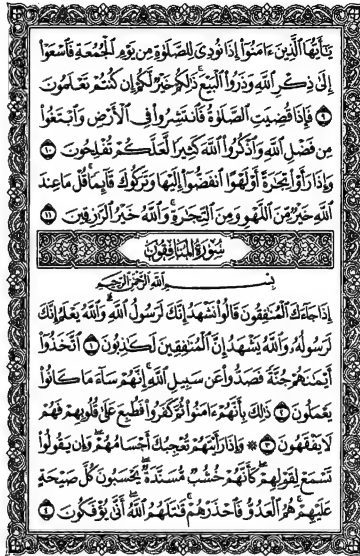 يَـٰٓأَيُّهَا ٱلَّذِينَ ءَامَنُوٓا۟ إِذَا نُودِىَ لِلصَّلَوٰةِ مِن يَوْمِ ٱلْجُمُعَةِ فَٱسْعَوْا۟
إِلَىٰ ذِكْرِ ٱللَّهِ وَذَرُوا۟ ٱلْبَيْعَ ۚ ذَٰلِكُمْ خَيْرٌ لَّكُمْ إِن كُنتُمْ تَعْلَمُونَ
٩ فَإِذَا قُضِيَتِ ٱلصَّلَوٰةُ فَٱنتَشِرُوا۟ فِى ٱلْأَرْضِ وَٱبْتَغُوا۟
مِن فَضْلِ ٱللَّهِ وَٱذْكُرُوا۟ ٱللَّهَ كَثِيرًا لَّعَلَّكُمْ تُفْلِحُونَ ١٠
وَإِذَا رَأَوْا۟ تِجَـٰرَةً أَوْ لَهْوًا ٱنفَضُّوٓا۟ إِلَيْهَا وَتَرَكُوكَ قَآئِمًا ۚ قُلْ مَا عِندَ
ٱللَّهِ خَيْرٌ مِّنَ ٱللَّهْوِ وَمِنَ ٱلتِّجَـٰرَةِ ۚ وَٱللَّهُ خَيْرُ ٱلرَّٰزِقِينَ ١١
سُورَةُ المُنَافِقُونَ
بِسْمِ ٱللَّهِ ٱلرَّحْمَـٰنِ ٱلرَّحِيمِ
إِذَا جَآءَكَ ٱلْمُنَـٰفِقُونَ قَالُوا۟ نَشْهَدُ إِنَّكَ لَرَسُولُ ٱللَّهِ ۗ وَٱللَّهُ يَعْلَمُ إِنَّكَ
لَرَسُولُهُۥ وَٱللَّهُ يَشْهَدُ إِنَّ ٱلْمُنَـٰفِقِينَ لَكَـٰذِبُونَ ١ ٱتَّخَذُوٓا۟
أَيْمَـٰنَهُمْ جُنَّةً فَصَدُّوا۟ عَن سَبِيلِ ٱللَّهِ ۚ إِنَّهُمْ سَآءَ مَا كَانُوا۟
يَعْمَلُونَ ٢ ذَٰلِكَ بِأَنَّهُمْ ءَامَنُوا۟ ثُمَّ كَفَرُوا۟ فَطُبِعَ عَلَىٰ قُلُوبِهِمْ فَهُمْ
لَا يَفْقَهُونَ ٣ ۞ وَإِذَا رَأَيْتَهُمْ تُعْجِبُكَ أَجْسَامُهُمْ ۖ وَإِن يَقُولُوا۟
تَسْمَعْ لِقَوْلِهِمْ ۖ كَأَنَّهُمْ خُشُبٌ مُّسَنَّدَةٌ ۖ يَحْسَبُونَ كُلَّ صَيْحَةٍ
عَلَيْهِمْ ۚ هُمُ ٱلْعَدُوُّ فَٱحْذَرْهُمْ ۚ قَـٰتَلَهُمُ ٱللَّهُ ۖ أَنَّىٰ يُؤْفَكُونَ ٤